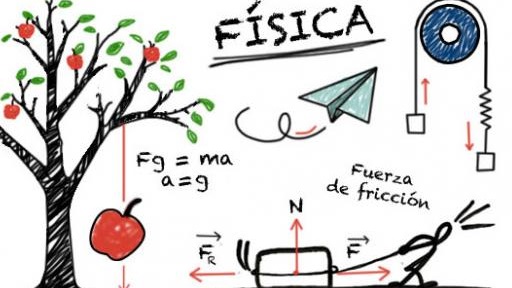 FÍSICA
Fg = ma
a=g
Fuerza
de fricción
N
F_R
F